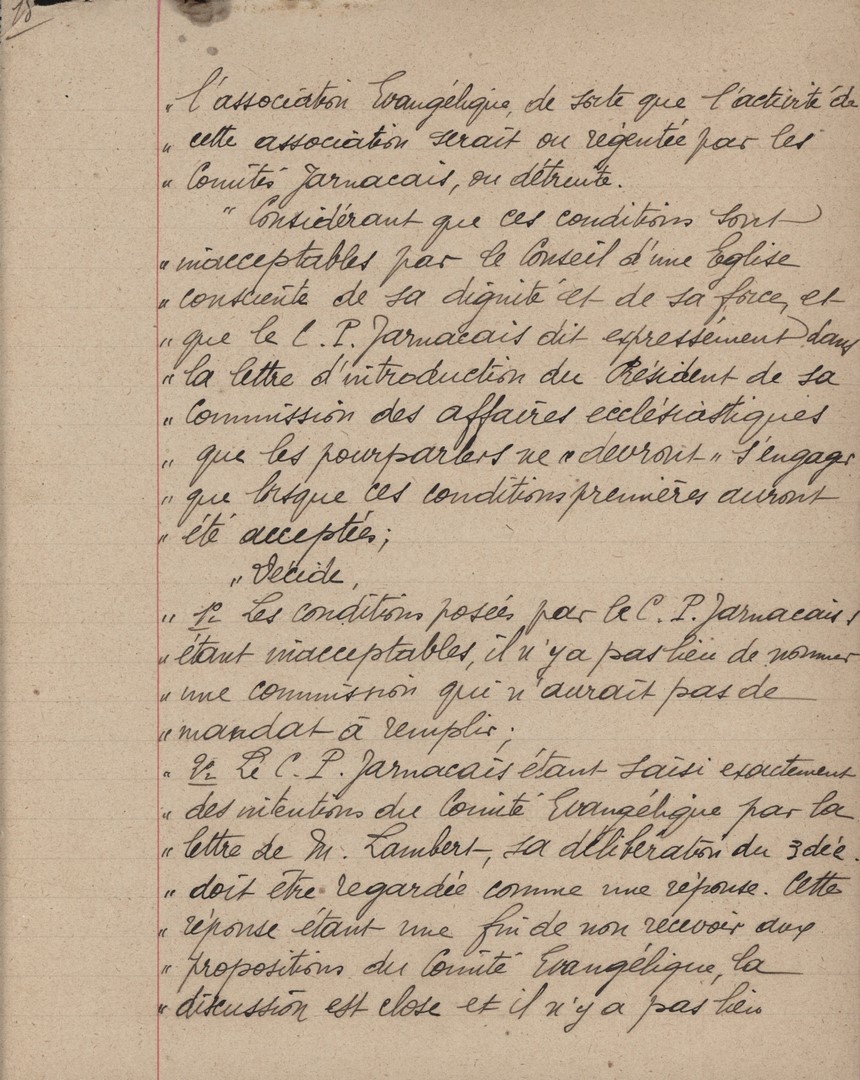 18
" l'association Evangélique, de sorte que l'activité de
" cette association serait ou régentée par les
" Comités Jarnacais, ou détruite.
" Considérant que ces conditions sont
" inacceptables par le Conseil d'une Eglise
" consciente de sa dignité et de sa force, et
" que le C. P. Jarnacais dit expressément dans
" la lettre d'introduction du Président de sa
" Commission des affaires ecclésiastiques
" que les pourparlers ne " devront " s'engager
" que lorsque ces conditions premières auront
" été acceptées;
" Décide,
" 1º Les conditions posées par le C. P. Jarnacais
" étant inacceptables, il n'y a pas lieu de nommer
" une commission qui n'aurait pas de
" mandat à remplir;
" 2º Le C. P. Jarnacais étant saisi exactement
" des intentions du Comité Evangélique par la
" lettre de M. Lambert, sa délibération du 3 déc.
" doit être regardée comme une réponse. Cette
" réponse étant une fin de non recevoir aux
" propositions du Comité Evangélique, la
" discussion est close et il n'y a pas lieu